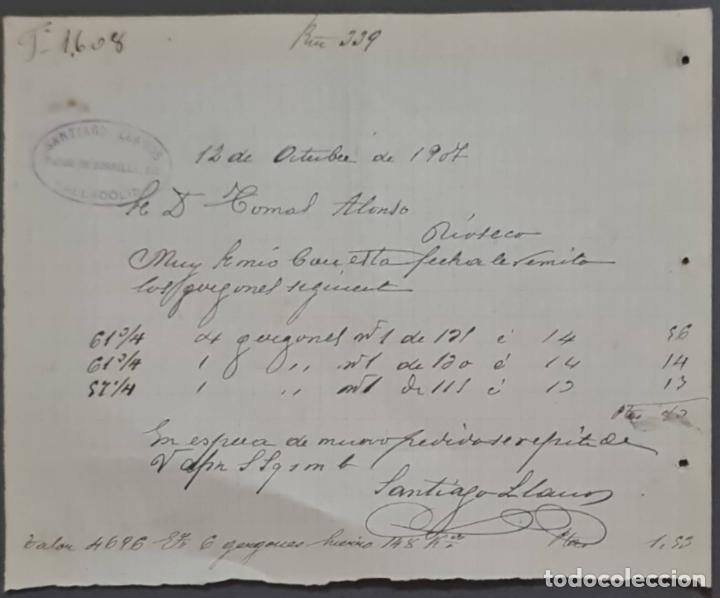 Fª 1,608
Rm 339
SANTIAGO LLANOS
VALLADOLID
12 de Octubre de 1907
Sr D Tomas Alonso
Rioseco
Muy Sr mio Con esta fecha le remito
los gergones siguient
61 3/4 4 gergones nº1 de 121 á 14 56
61 3/4 1 ,, nº1 de 120 á 14 14
57 1/4 1 ,, nº1 de 111 á 13 13
Ptas
En espera de nuevo pedido se repite de
V afmo S S q s m b
Santiago Llanos
Talon 4696 6 gergones hierro 148 Kos Ptas 1,53
todocoleccion.net